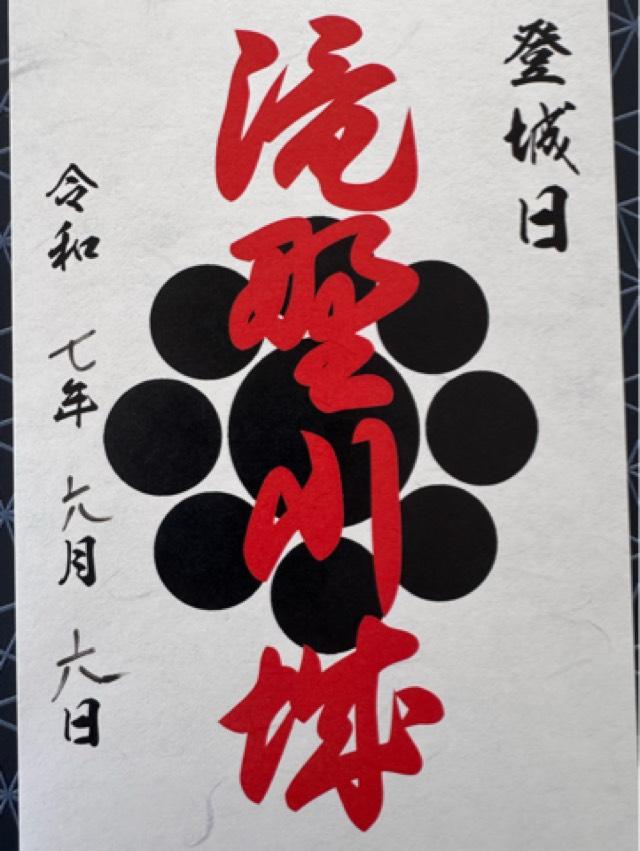 登城日
滝野川城
令和 七年 六月 六日